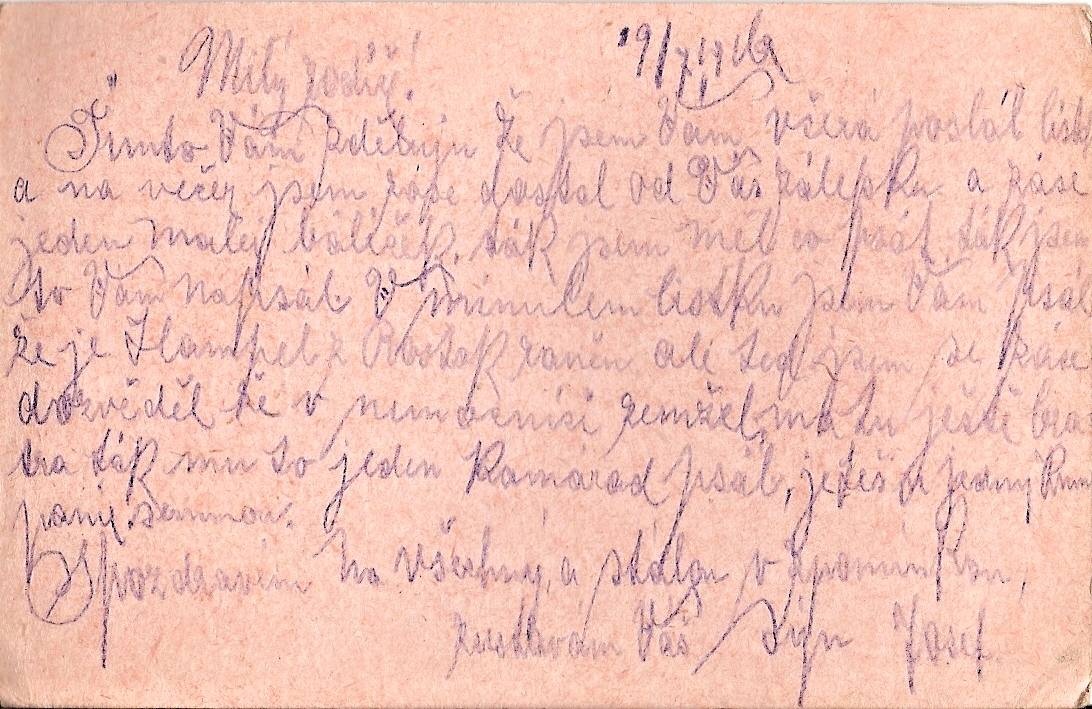 Milý rodič! 19/7 1916
Tímto Vám zděluju že jsem Vám včera poslal líst
a na večer jsem záse dostal od Vás zálepku a záse
jeden malej balíček, ták jsem měl co psát, ták jsem
to Vám napsál V minulem listku jsem Vám psál
že je Hampel z Rostok raněn ale teď jsem se záse
dozvěděl že v nemocnici zemřel, má tu ještě bra
tra ták mu to jeden kamárad psál, je téš u jedný kum
panie semnou.
S pozdravem na všechny, a stálou vzpomínkou,
zustávám Váš syn Josef.